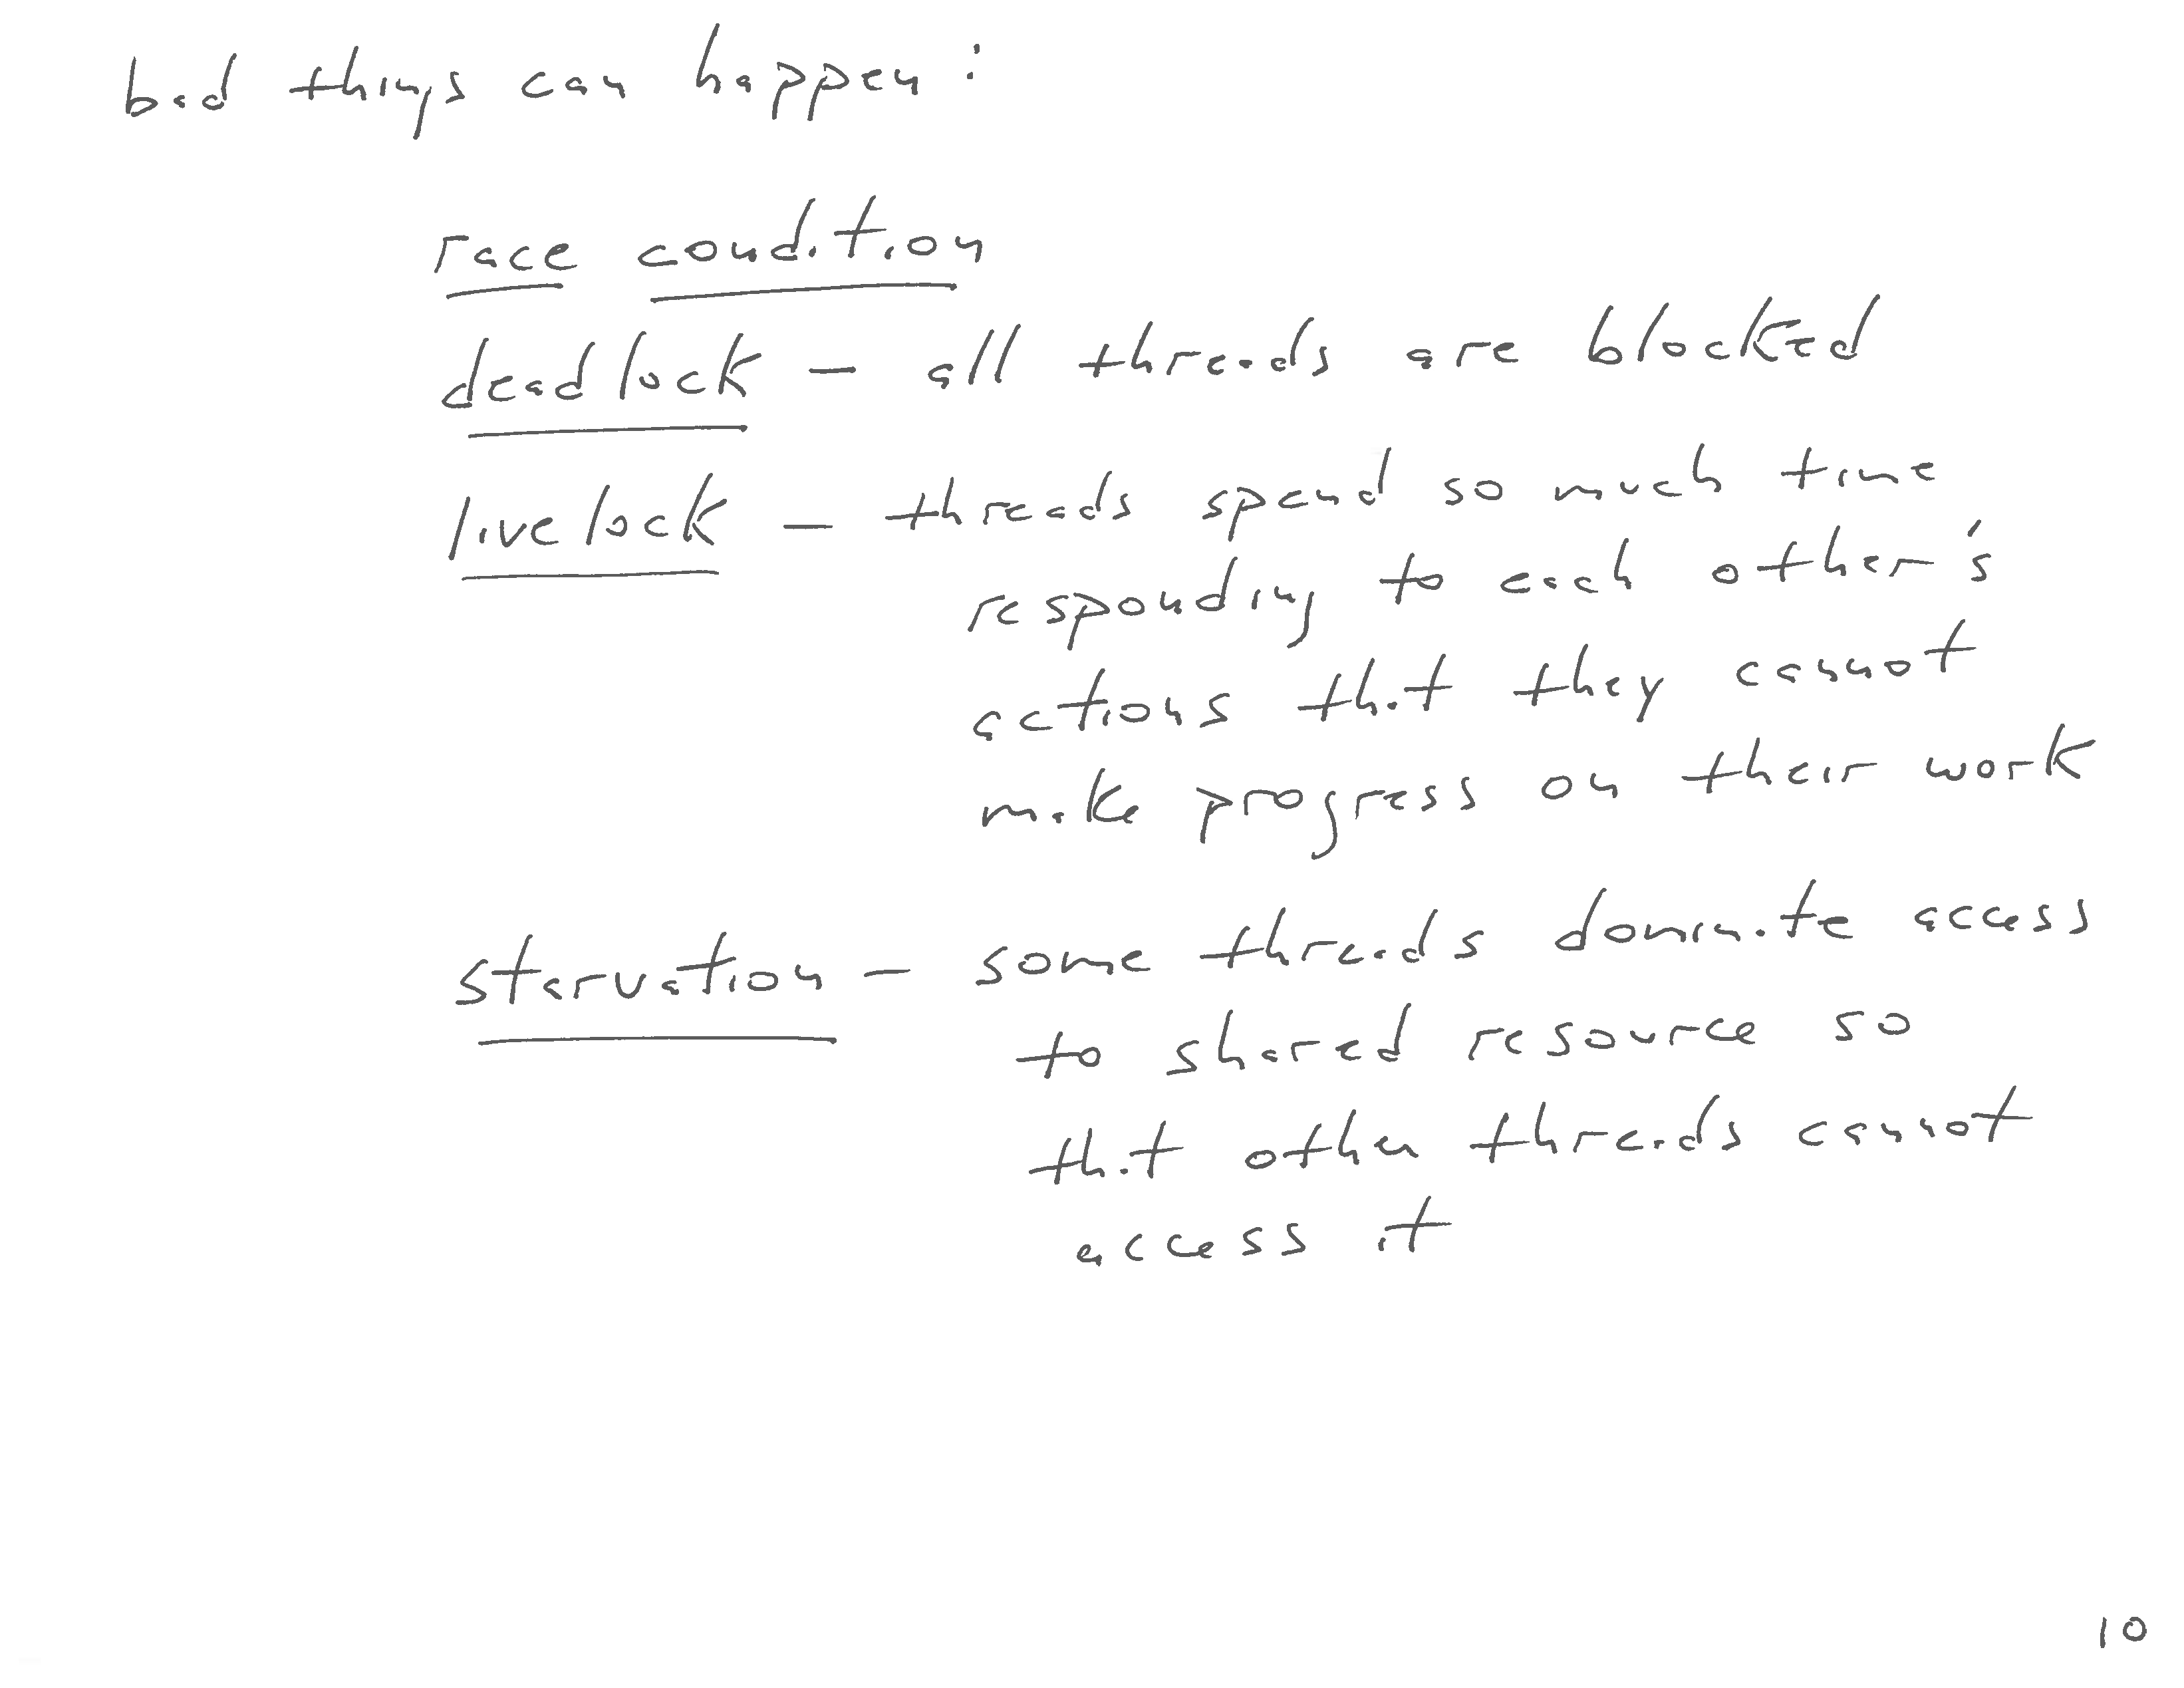 bad things can happen:
race condition
deadlock — all threads are blocked
livelock — threads spend so much time
responding to each other's
actions that they cannot
make progress on their work
starvation — some threads dominate access
to shared resource so
that other threads cannot
access it
10